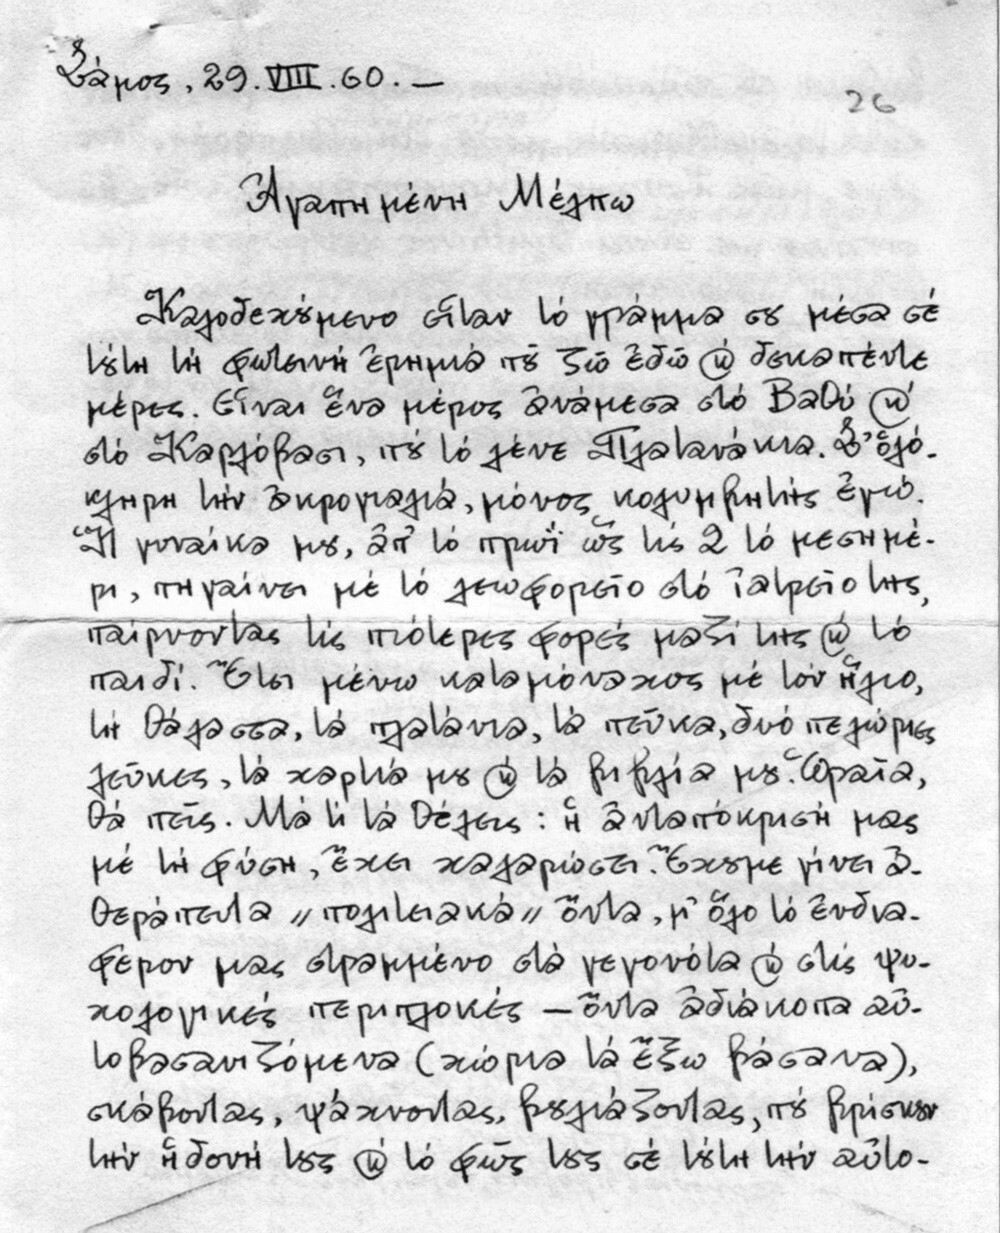 Σάμος, 29.VIII.60. —
26
Ἀγαπημένη Μέλπω
Καλοδεχούμενο εἶταν τό γράμμα σου μέσα σέ
τούτη τή φωτεινή ἐρημιά πού ζῶ ἐδῶ κ δεκαπέντε
μέρες. Εἶναι ἕνα μέρος ἀνάμεσα στό Βαθύ κ
στό Καρλόβασι, πού τό λένε Πλατανάκια. Σ' ὁλό-
κληρη τήν ἀκρογιαλιά, μόνος κολυμβητής ἐγώ.
Ἡ γυναίκα μου, ἀπ' τό πρωΐ ὥς τίς 2 τό μεσημέ-
ρι, πηγαίνει μέ τό λεωφορεῖο στό ἰατρεῖο της,
παίρνοντας τίς πιότερες φορές μαζί της κ τό
παιδί. Ἔτσι μένω καταμόναχος μέ τόν ἥλιο,
τή θάλασσα, τά πλατάνια, τά πεῦκα, δυό πελώριες
λεῦκες, τά χαρτιά μου κ τά βιβλία μου. Ὡραῖα,
θά πεῖς. Μά τί τά θέλεις: ἡ ἀνταπόκρισή μας
μέ τή φύση, ἔχει χαλαρώσει. Ἔχουμε γίνει ἀ-
θεράπευτα „πολιτειακά„ ὄντα, μ' ὅλο τό ἐνδια-
φέρον μας στραμμένο στά γεγονότα κ στίς ψυ-
χολογικές περιπλοκές — ὄντα ἀδιάκοπα αὐ-
τοβασανιζόμενα (χώρια τά ἔξω βάσανα),
σκάβοντας, ψάχνοντας, βουλιάζοντας, πού βρίσκουν
τήν ἡδονή τους κ τό φῶς τους σέ τούτη τήν αὐτο-